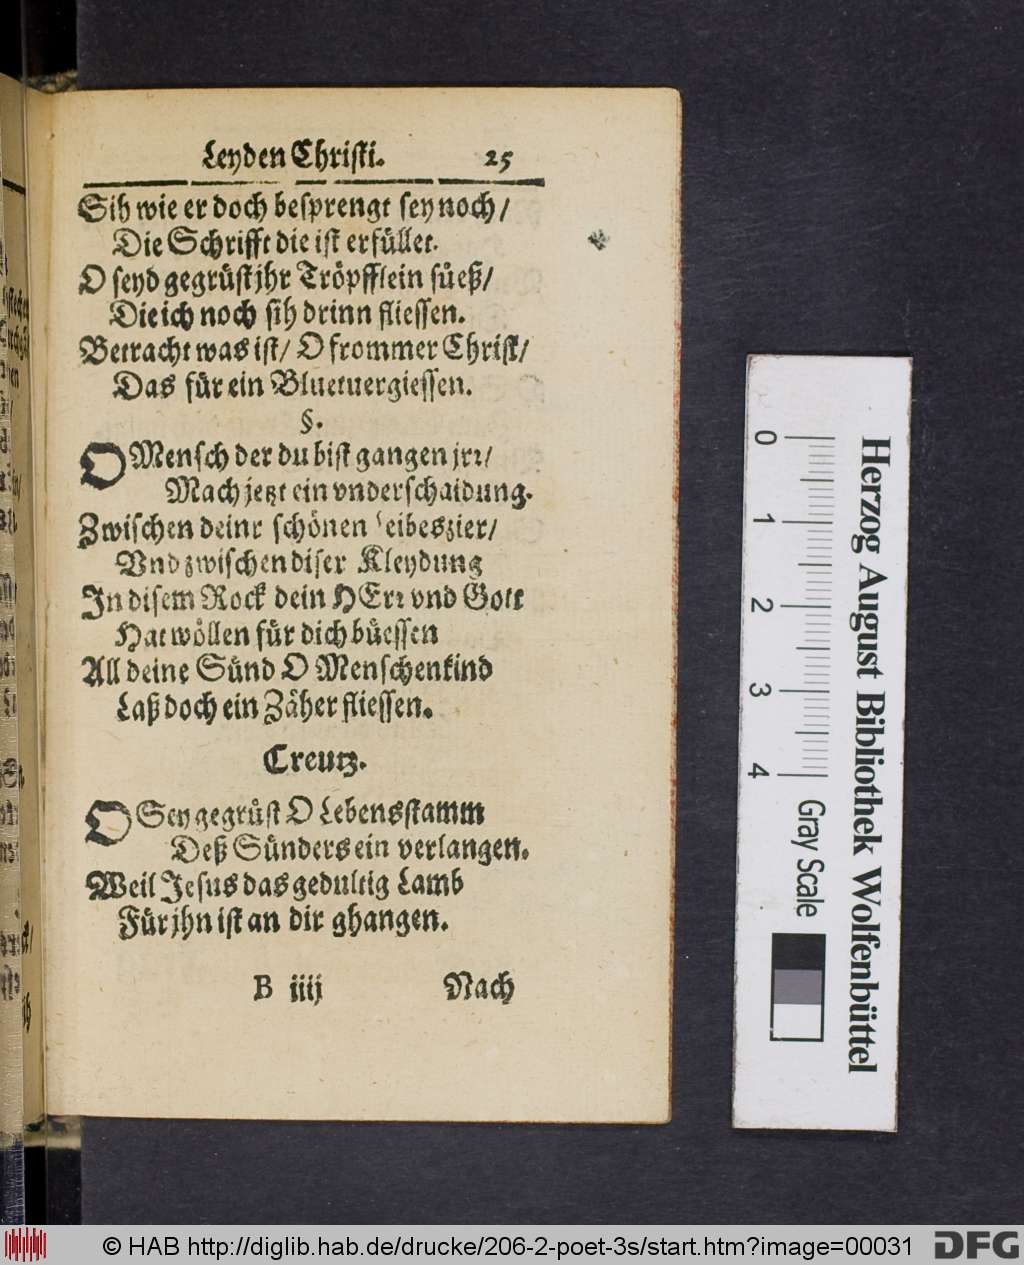 Leyden Christi. 25
Sih wie er doch besprengt sey noch/
Die Schrifft die ist erfüllet.
O seyd gegrüst jhr Tröpfflein süeß/
Die ich noch sih drinn fliessen.
Betracht was ist/ O frommer Christ/
Das für ein Bluetuergiessen.
§.
O Mensch der du bist gangen jrr/
Mach jetzt ein vnderschaidung.
Zwischen deinr schönen eibeszier/
Vnd zwischen diser Kleydung
In disem Rock dein HErr vnd Gott
Hat wöllen für dich büessen
All deine Sünd O Menschenkind
Laß doch ein Zäher fliessen.
Creutz.
O Sey gegrüst O Lebensstamm
Deß Sünders ein verlangen.
Weil Jesus das gedultig Lamb
Für jhn ist an dir ghangen.
B iiij Nach
0 1 2 3 4 Gray Scale
Herzog August Bibliothek Wolfenbüttel
© HAB http://diglib.hab.de/drucke/206-2-poet-3s/start.htm?image=00031 DFG